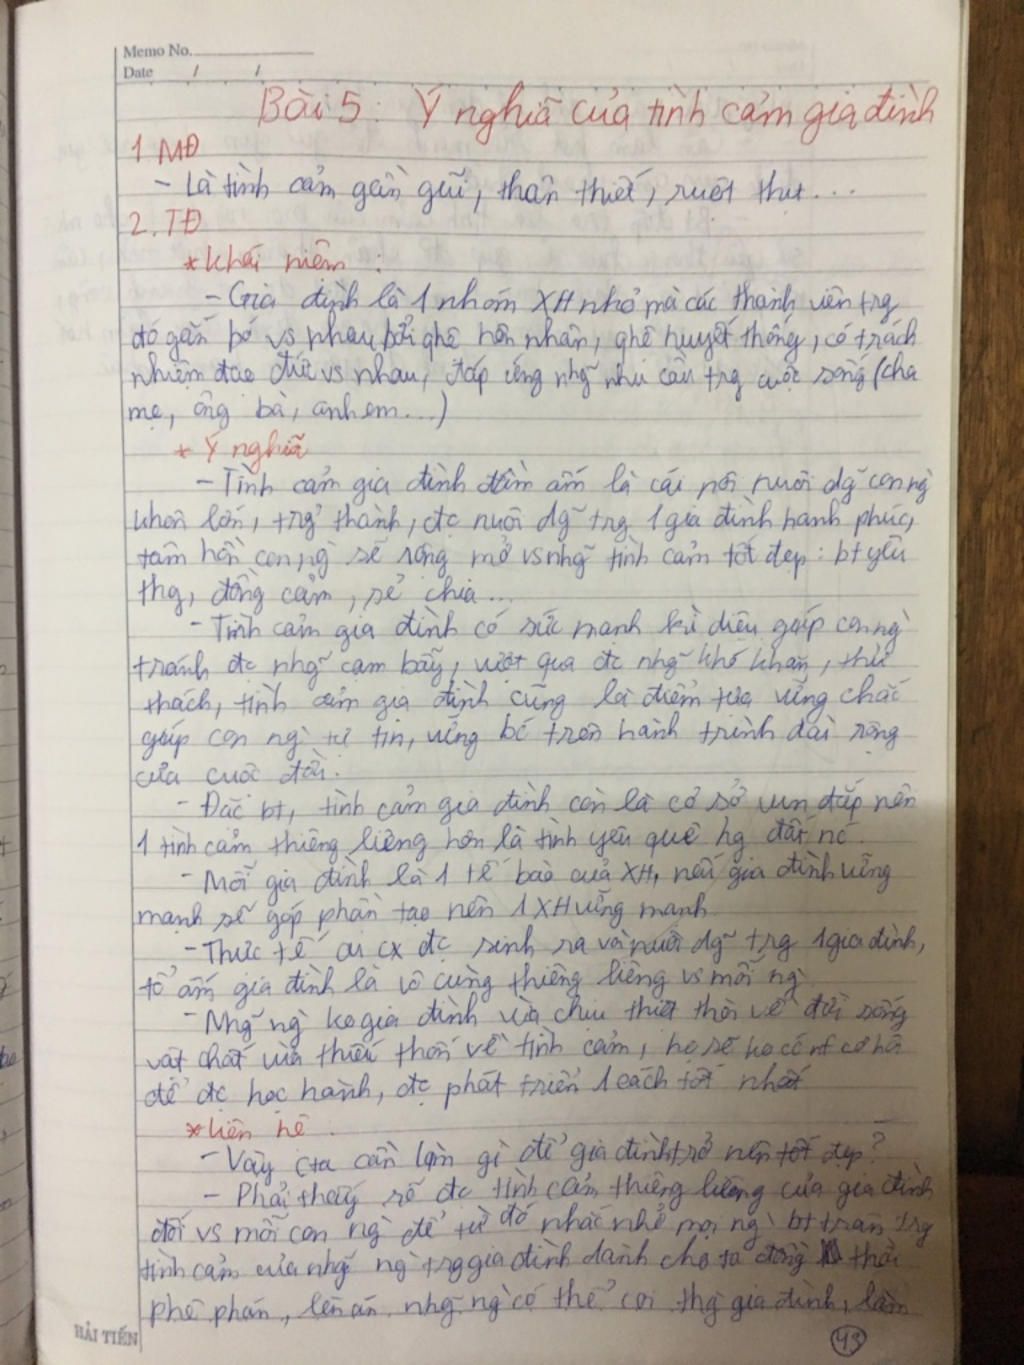 Memo No.
Date / /
Bài 5: Ý nghĩa của tình cảm gia đình
1 MĐ
- Là tình cảm gần gũi, thân thiết, ruột thịt...
2. TĐ
* Khái niệm :
- Gia đình là 1 nhóm XH nhỏ mà các thành viên trg
đó gắn bó vs nhau bởi qhệ hôn nhân, qhệ huyết thống, có trách
nhiệm đạo đức vs nhau, đáp ứng nhg~ nhu cầu trg cuộc sống (cha
mẹ, ông bà, anh em....)
* Ý nghĩa
- Tình cảm gia đình đầm ấm là cái nôi nuôi dg~ con ng`
khôn lớn, trg? thành, đc nuôi dg~ trg 1 gia đình hạnh phúc,
tâm hồn con ng` sẽ rộng mở vs nhg~ tình cảm tốt đẹp: bt yêu
thg, đồng cảm, sẻ chia...
- Tình cảm gia đình có sức mạnh kì diệu giúp con ng`
tránh đc nhg~ cạm bẫy, vượt qua đc nhg~ khó khăn, thử
thách, tình cảm gia đình cũng là điểm tựa vững chắc
giúp con ng` tự tin, vững bc trên hành trình dài rộng
của cuộc đời.
- Đặc bt, tình cảm gia đình còn là cơ sở vun đắp nên
1 tình cảm thiêng liêng hơn là tình yêu quê hg đất nc.
- Mỗi gia đình là 1 tế bào của XH, nếu gia đình vững
mạnh sẽ góp phần tạo nên 1 XH vững mạnh
- Thực tế ai cx đc sinh ra và nuôi dg~ trg 1 gia đình,
tổ ấm gia đình là vô cùng thiêng liêng vs mỗi ng`
- Nhg~ ng` ko gia đình vừa chịu thiệt thòi về đời sống
vật chất vừa thiếu thốn về tình cảm, họ sẽ ko có cơ hội
để đc học hành, đc phát triển 1 cách tốt nhất
* Liên hệ.
- Vậy cta cần làm gì để gia đình trở nên tốt đẹp?
- Phải thấy rõ đc tình cảm thiêng liêng của gia đình
đối vs mỗi con ng` để từ đó nhắc nhở mọi ng` bt trân trg
tình cảm của nhg~ ng` trg gia đình dành cho ta đồng thời
phê phán, lên án nhg~ ng` có thể coi thg` gia đình, làm
HẢI TIẾN
43